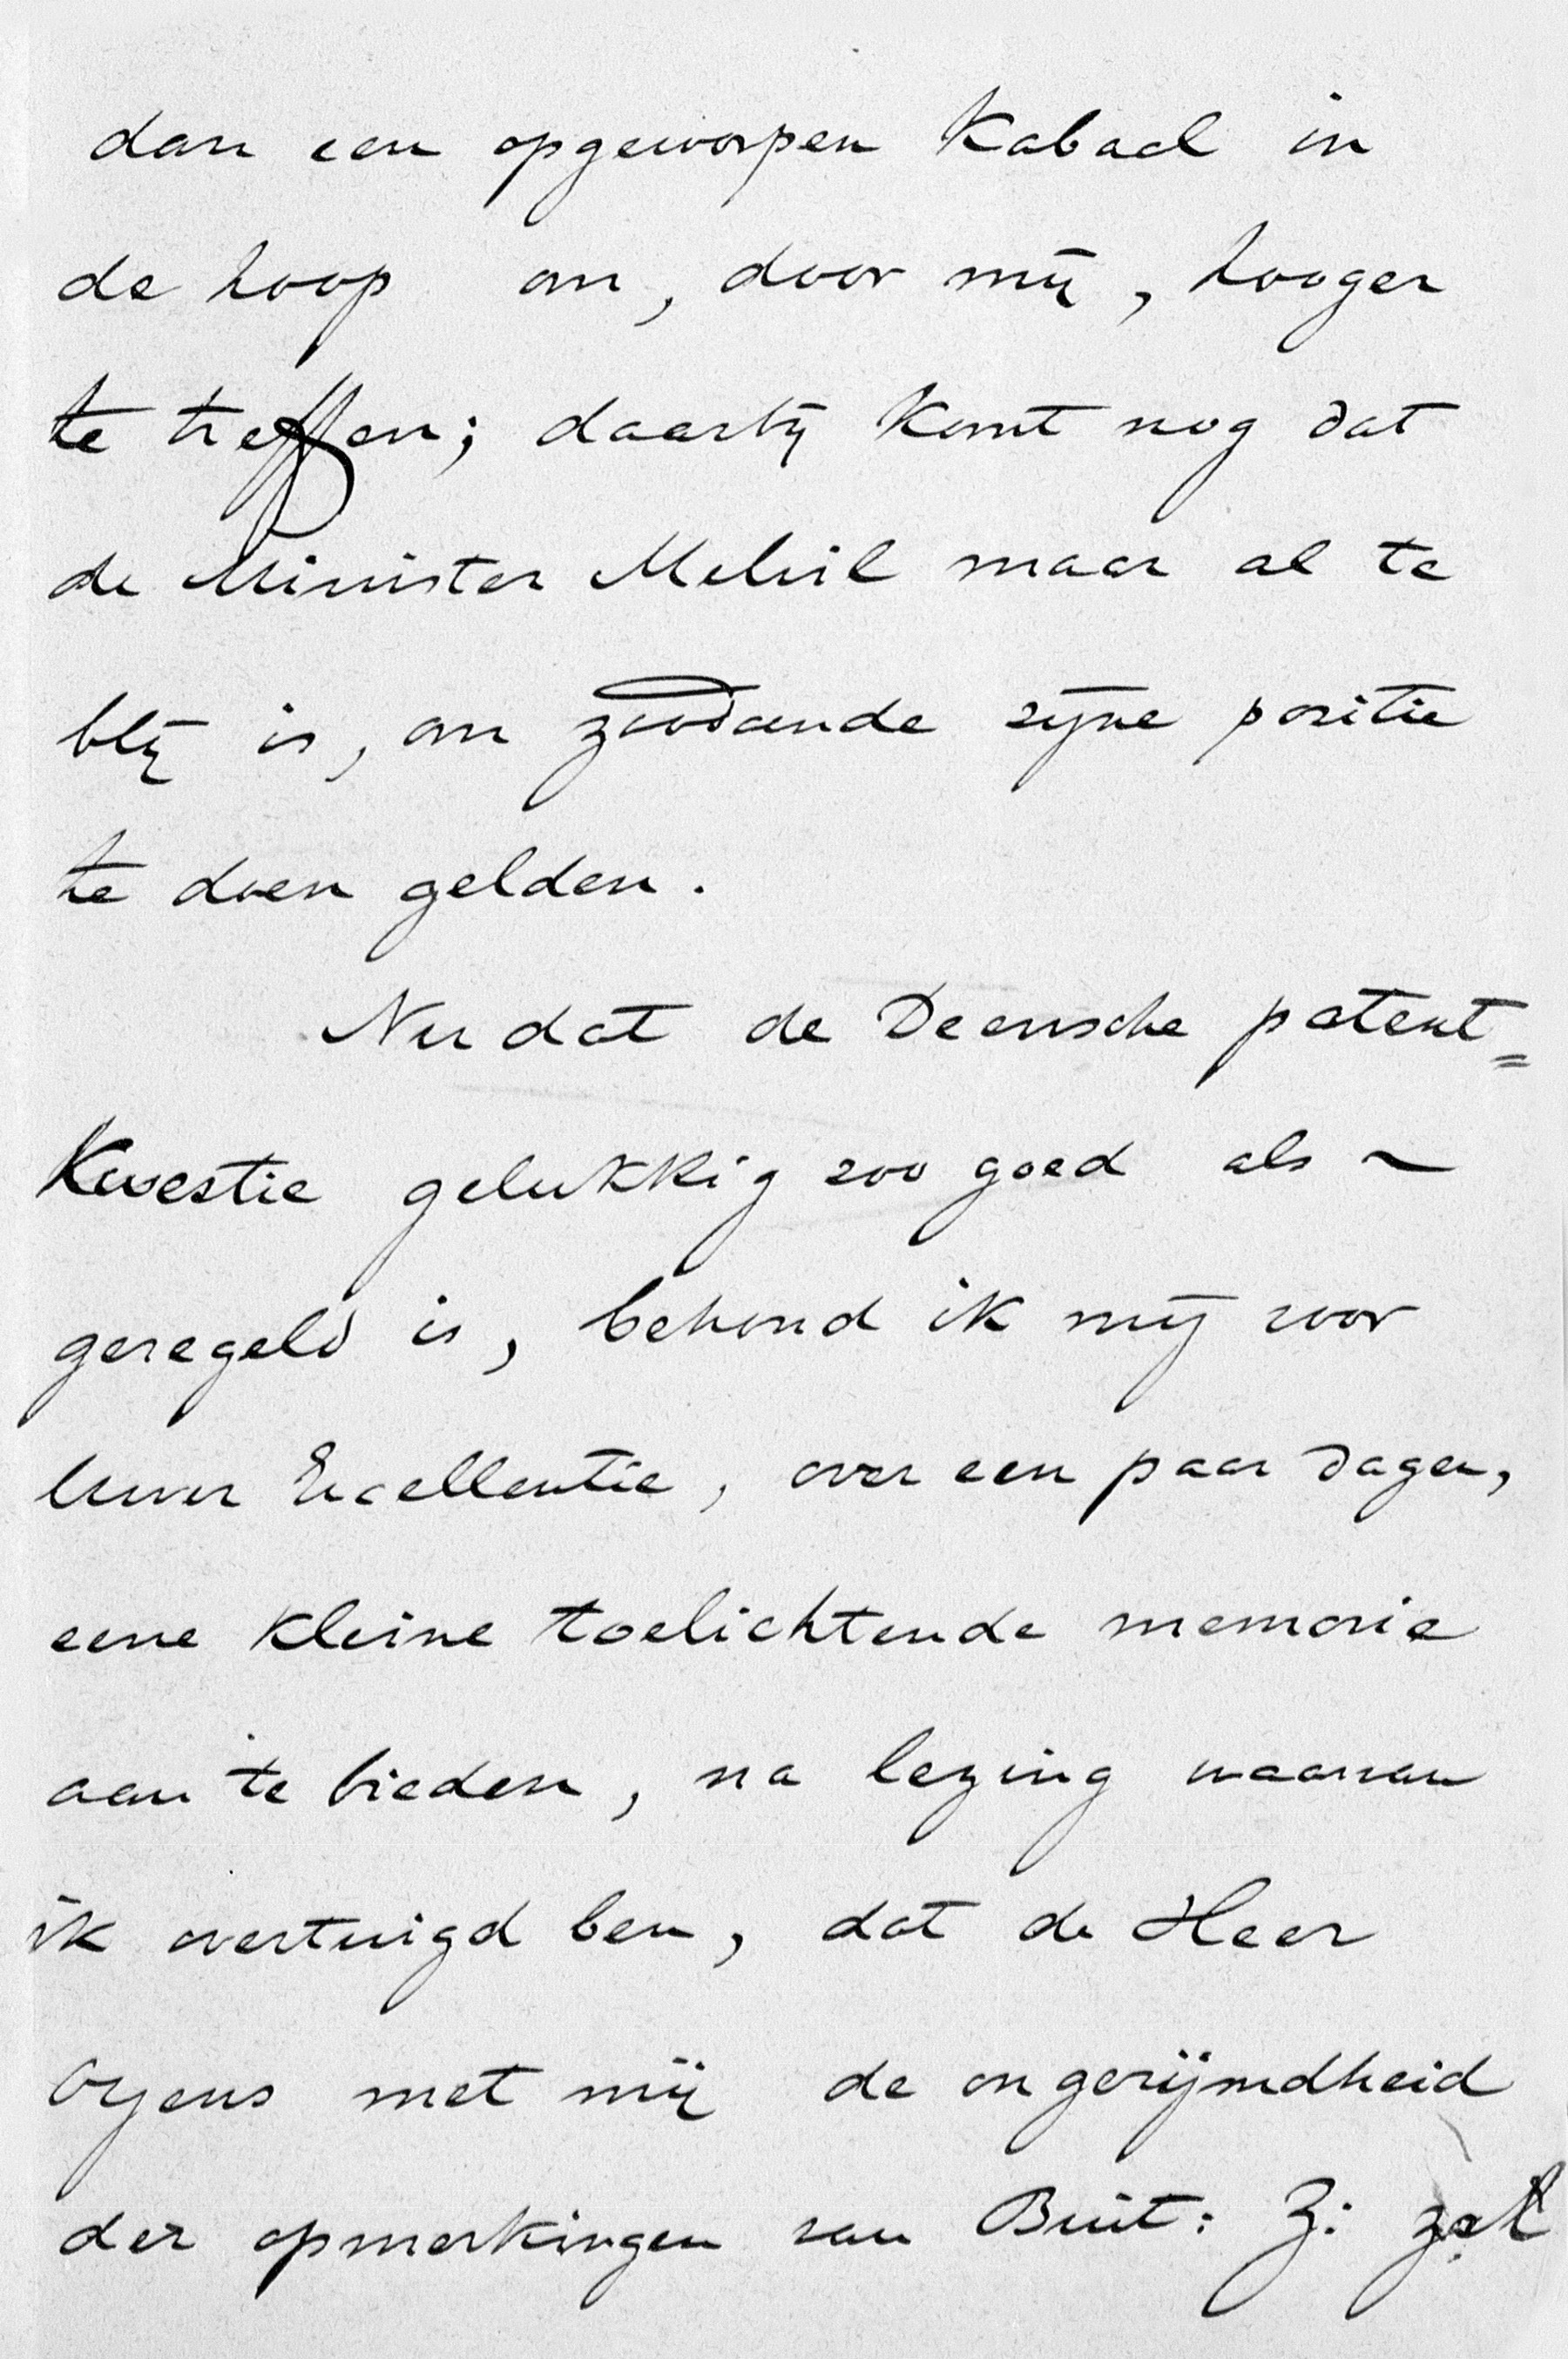 dan een opgeworpen Kabaal in
de hoop om, door mij, hooger
te treffen; daarbij Komt nog dat
de Minister Melvil maar al te
blij is, om zoodoende zijne positie
te doen gelden.
Nu dat de Deensche patent=
Kwestie gelukkig zoo goed als ~
geregeld is, behoud ik mij voor
Uwer Excellentie, over een paar dagen,
eene kleine toelichtende memorie
aan te bieden, na lezing waarvan
ik overtuigd ben, dat de Heer
Oyens met mij de ongerijmdheid
der opmerkingen van Buit: Z: zal